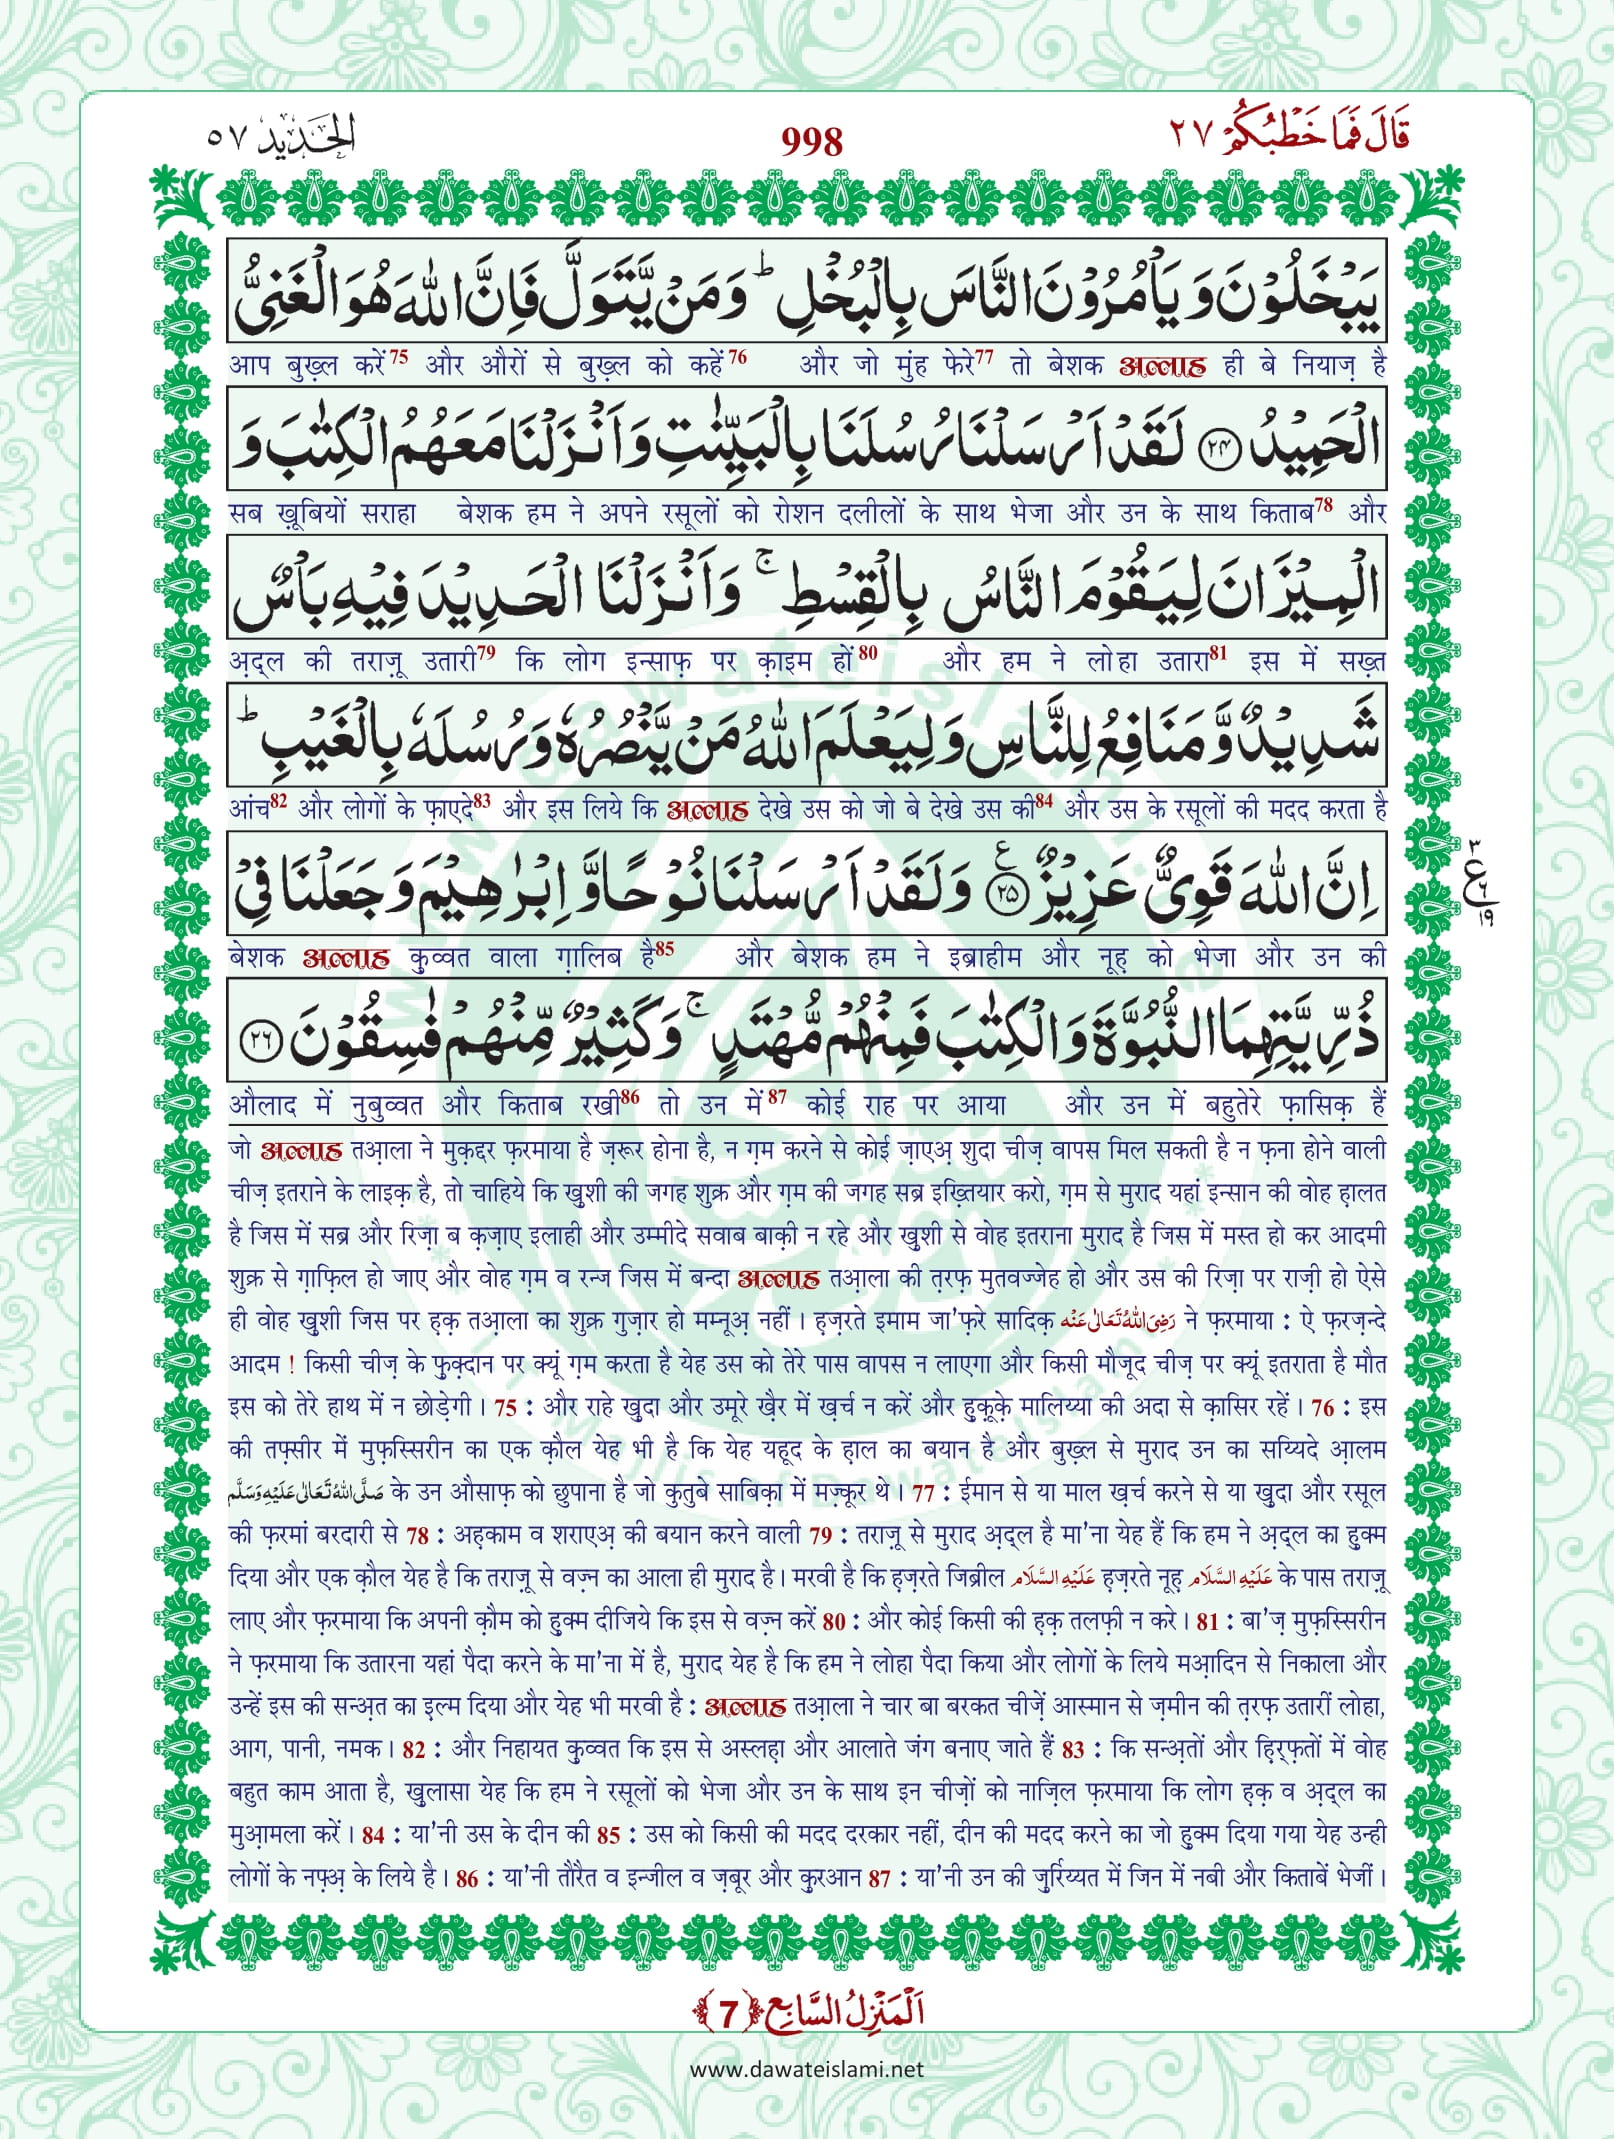 قَالَ فَمَا خَطْبُكُمْ ٢٧
998
الحَدِيد ٥٧
يَبْخَلُوْنَ وَيَاْمُرُوْنَ النَّاسَ بِالْبُخْلِ ؕ وَمَنْ يَّتَوَلَّ فَاِنَّ اللّٰهَ هُوَ الْغَنِىُّ
आप बुख़्ल करें75 और औरों से बुख़्ल को कहें76 और जो मुंह फेरे77 तो बेशक अल्लाह ही बे नियाज़ है
الْحَمِيْدُ ﴿۲۴﴾ لَقَدْ اَرْسَلْنَا رُسُلَنَا بِالْبَيِّنٰتِ وَاَنْزَلْنَا مَعَهُمُ الْكِتٰبَ وَ
सब ख़ूबियों सराहा बेशक हम ने अपने रसूलों को रोशन दलीलों के साथ भेजा और उन के साथ किताब78 और
الْمِيْزَانَ لِيَقُوْمَ النَّاسُ بِالْقِسْطِ ۚ وَاَنْزَلْنَا الْحَدِيْدَ فِيْهِ بَاْسٌ
अ़द्ल की तराज़ू उतारी79 कि लोग इन्साफ़ पर क़ाइम हों80 और हम ने लोहा उतारा81 इस में सख़्त
شَدِيْدٌ وَّمَنَافِعُ لِلنَّاسِ وَلِيَعْلَمَ اللّٰهُ مَنْ يَّنْصُرُهٗ وَرُسُلَهٗ بِالْغَيْبِ ؕ
आंच82 और लोगों के फ़ाएदे83 और इस लिये कि अल्लाह देखे उस को जो बे देखे उस की84 और उस के रसूलों की मदद करता है
اِنَّ اللّٰهَ قَوِىٌّ عَزِيْزٌ ﴿۲۵﴾ ع وَلَقَدْ اَرْسَلْنَا نُوْحًا وَّاِبْرٰهِيْمَ وَجَعَلْنَا فِىْ
٣ ع ٦ ١٩
बेशक अल्लाह क़ुव्वत वाला ग़ालिब है85 और बेशक हम ने इब्राहीम और नूह़ को भेजा और उन की
ذُرِّيَّتِهِمَا النُّبُوَّةَ وَالْكِتٰبَ فَمِنْهُمْ مُّهْتَدٍ ۚ وَكَثِيْرٌ مِّنْهُمْ فٰسِقُوْنَ ﴿۲۶﴾
औलाद में नुबुव्वत और किताब रखी86 तो उन में87 कोई राह पर आया और उन में बहुतेरे फ़ासिक़ हैं
जो अल्लाह तआ़ला ने मुक़द्दर फ़रमाया है ज़रूर होना है, न ग़म करने से कोई ज़ाएअ़ शुदा चीज़ वापस मिल सकती है न फ़ना होने वाली
चीज़ इतराने के लाइक़ है, तो चाहिये कि ख़ुशी की जगह शुक्र और ग़म की जगह सब्र इख़्तियार करो, ग़म से मुराद यहां इन्सान की वोह ह़ालत
है जिस में सब्र और रिज़ा ब क़ज़ाए इलाही और उम्मीदे सवाब बाक़ी न रहे और ख़ुशी से वोह इतराना मुराद है जिस में मस्त हो कर आदमी
शुक्र से ग़ाफ़िल हो जाए और वोह ग़म व रन्ज जिस में बन्दा अल्लाह तआ़ला की त़रफ़ मुतवज्जेह हो और उस की रिज़ा पर राज़ी हो ऐसे
ही वोह ख़ुशी जिस पर ह़क़ तआ़ला का शुक्र गुज़ार हो मम्नूअ़ नहीं। ह़ज़रते इमाम जा'फ़रे सादिक़ رَضِیَ اللّٰهُ تَعَالٰی عَنْه ने फ़रमाया : ऐ फ़रज़न्दे
आदम ! किसी चीज़ के फ़ुक़्दान पर क्यूं ग़म करता है येह उस को तेरे पास वापस न लाएगा और किसी मौजूद चीज़ पर क्यूं इतराता है मौत
इस को तेरे हाथ में न छोड़ेगी। 75 : और राहे ख़ुदा और उमूरे ख़ैर में ख़र्च न करें और हुक़ूक़े मालिय्या की अदा से क़ासिर रहें। 76 : इस
की तफ़्सीर में मुफ़स्सिरीन का एक क़ौल येह भी है कि येह यहूद के ह़ाल का बयान है और बुख़्ल से मुराद उन का सय्यिदे आ़लम
صَلَّی اللّٰهُ تَعَالٰی عَلَیْهِ وَسَلَّم के उन औसाफ़ को छुपाना है जो कुतुबे साबिक़ा में मज़्कूर थे। 77 : ईमान से या माल ख़र्च करने से या ख़ुदा और रसूल
की फ़रमां बरदारी से 78 : अह़काम व शराएअ़ की बयान करने वाली 79 : तराज़ू से मुराद अ़द्ल है मा'ना येह हैं कि हम ने अ़द्ल का हुक्म
दिया और एक क़ौल येह है कि तराज़ू से वज़्न का आला ही मुराद है। मरवी है कि ह़ज़रते जिब्रील عَلَیْهِ السَّلَام ह़ज़रते नूह़ عَلَیْهِ السَّلَام के पास तराज़ू
लाए और फ़रमाया कि अपनी क़ौम को हुक्म दीजिये कि इस से वज़्न करें 80 : और कोई किसी की ह़क़ तलफ़ी न करे। 81 : बा'ज़ मुफ़स्सिरीन
ने फ़रमाया कि उतारना यहां पैदा करने के मा'ना में है, मुराद येह है कि हम ने लोहा पैदा किया और लोगों के लिये मआ़दिन से निकाला और
उन्हें इस की सन्अ़त का इ़ल्म दिया और येह भी मरवी है : अल्लाह तआ़ला ने चार बा बरकत चीज़ें आस्मान से ज़मीन की त़रफ़ उतारीं लोहा,
आग, पानी, नमक। 82 : और निहायत क़ुव्वत कि इस से अस्लह़ा और आलाते जंग बनाए जाते हैं 83 : कि सन्अ़तों और ह़िर्फ़तों में वोह
बहुत काम आता है, ख़ुलासा येह कि हम ने रसूलों को भेजा और उन के साथ इन चीज़ों को नाज़िल फ़रमाया कि लोग ह़क़ व अ़द्ल का
मुआ़मला करें। 84 : या'नी उस के दीन की 85 : उस को किसी की मदद दरकार नहीं, दीन की मदद करने का जो हुक्म दिया गया येह उन्ही
लोगों के नफ़्अ़ के लिये है। 86 : या'नी तौरैत व इन्जील व ज़बूर और क़ुरआन 87 : या'नी उन की ज़ुर्रिय्यत में जिन में नबी और किताबें भेजीं।
اَلْمَنْزِلُ السَّابِع ﴿7﴾
www.dawateislami.net